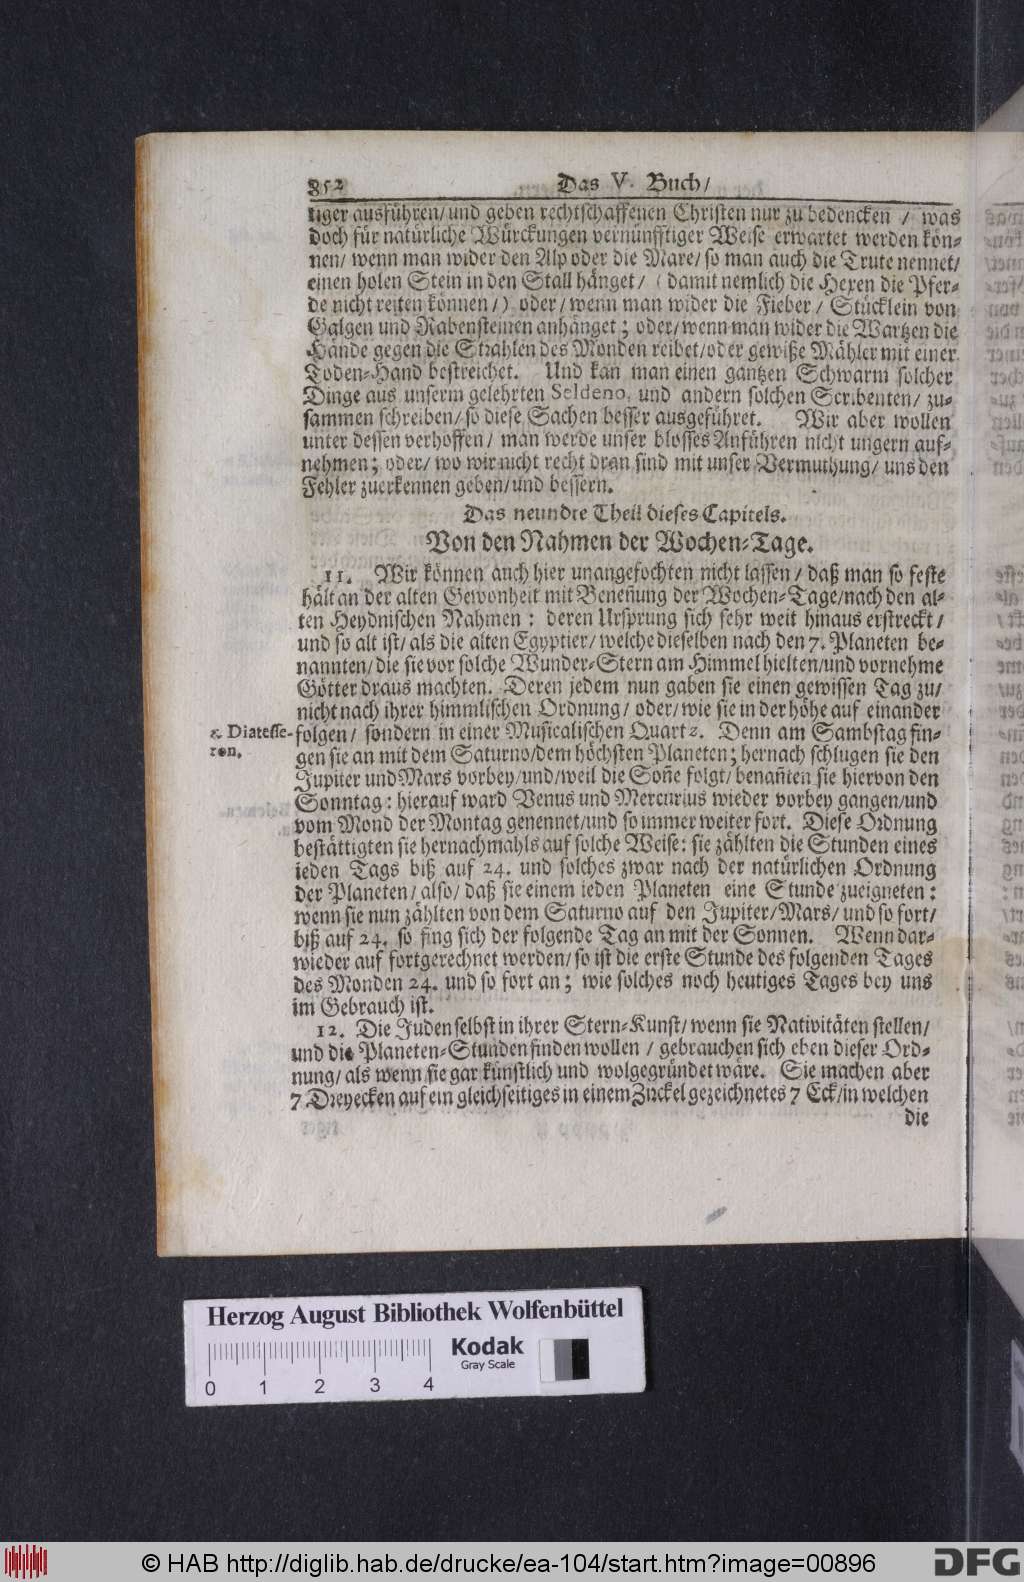 852 Das V. Buch/
tiger ausführen/und geben rechtschaffenen Christen nur zu bedencken / was
doch für natürliche Würckungen vernünfftiger Weise erwartet werden kön-
nen/ wenn man wider den Alp oder die Mare/ so man auch die Trute nennet/
einen holen Stein in den Stall hänget/ ( damit nemlich die Hexen die Pfer-
de nicht reiten können/) oder/ wenn man wider die Fieber / Stücklein von
Galgen und Rabensteinen anhänget; oder/ wenn man wider die Wartzen die
Hände gegen die Strahlen des Monden reibet/oder gewiße Mähler mit einer
Toden-Hand bestreichet. Und kan man einen gantzen Schwarm solcher
Dinge aus unserm gelehrten Seldeno, und andern solchen Scribenten/ zu-
sammen schreiben/ so diese Sachen besser ausgeführet. Wir aber wollen
unter dessen verhoffen/ man werde unser blosses Anführen nicht ungern auf-
nehmen; oder/ wo wir nicht recht dran sind mit unser Vermuthung/ uns den
Fehler zuerkennen geben/und bessern.
Das neundte Theil dieses Capitels.
Von den Nahmen der Wochen-Tage.
11. Wir können auch hier unangefochten nicht lassen/ daß man so feste
hält an der alten Gewonheit mit Beneñung der Wochen-Tage/nach den al-
ten Heydnischen Nahmen: deren Ursprung sich sehr weit hinaus erstreckt/
und so alt ist/ als die alten Egyptier/ welche dieselben nach den 7. Planeten be-
nannten/ die sie vor solche Wunder-Stern am Himmel hielten/und vornehme
Götter draus machten. Deren jedem nun gaben sie einen gewissen Tag zu/
nicht nach ihrer himmlischen Ordnung/ oder/ wie sie in der höhe auf einander
folgen/ sondern in einer Musicalischen Quart z. Denn am Sambstag fin-
z. Diatesse-
ron.
gen sie an mit dem Saturno/dem höchsten Planeten; hernach schlugen sie den
Jupiter und Mars vorbey/und/weil die Soñe folgt/ benañten sie hiervon den
Sonntag: hierauf ward Venus und Mercurius wieder vorbey gangen/und
vom Mond der Montag genennet/und so immer weiter fort. Diese Ordnung
bestättigten sie hernachmahls auf solche Weise: sie zählten die Stunden eines
ieden Tags biß auf 24. und solches zwar nach der natürlichen Ordnung
der Planeten/ also/ daß sie einem ieden Planeten eine Stunde zueigneten:
wenn sie nun zählten von dem Saturno auf den Jupiter/Mars/ und so fort/
biß auf 24. so fing sich der folgende Tag an mit der Sonnen. Wenn dar-
wieder auf fortgerechnet werden/ so ist die erste Stunde des folgenden Tages
des Monden 24. und so fort an; wie solches noch heutiges Tages bey uns
im Gebrauch ist.
12. Die Juden selbst in ihrer Stern-Kunst/ wenn sie Nativitäten stellen/
und die Planeten-Stunden finden wollen / gebrauchen sich eben dieser Ord-
nung/ als wenn sie gar künstlich und wolgegründet wäre. Sie machen aber
7 Dreyecken auf ein gleichseitiges in einem Zirckel gezeichnetes 7 Eck/in welchen
die
Herzog August Bibliothek Wolfenbüttel
Kodak
Gray Scale
0 1 2 3 4
© HAB http://diglib.hab.de/drucke/ea-104/start.htm?image=00896
DFG